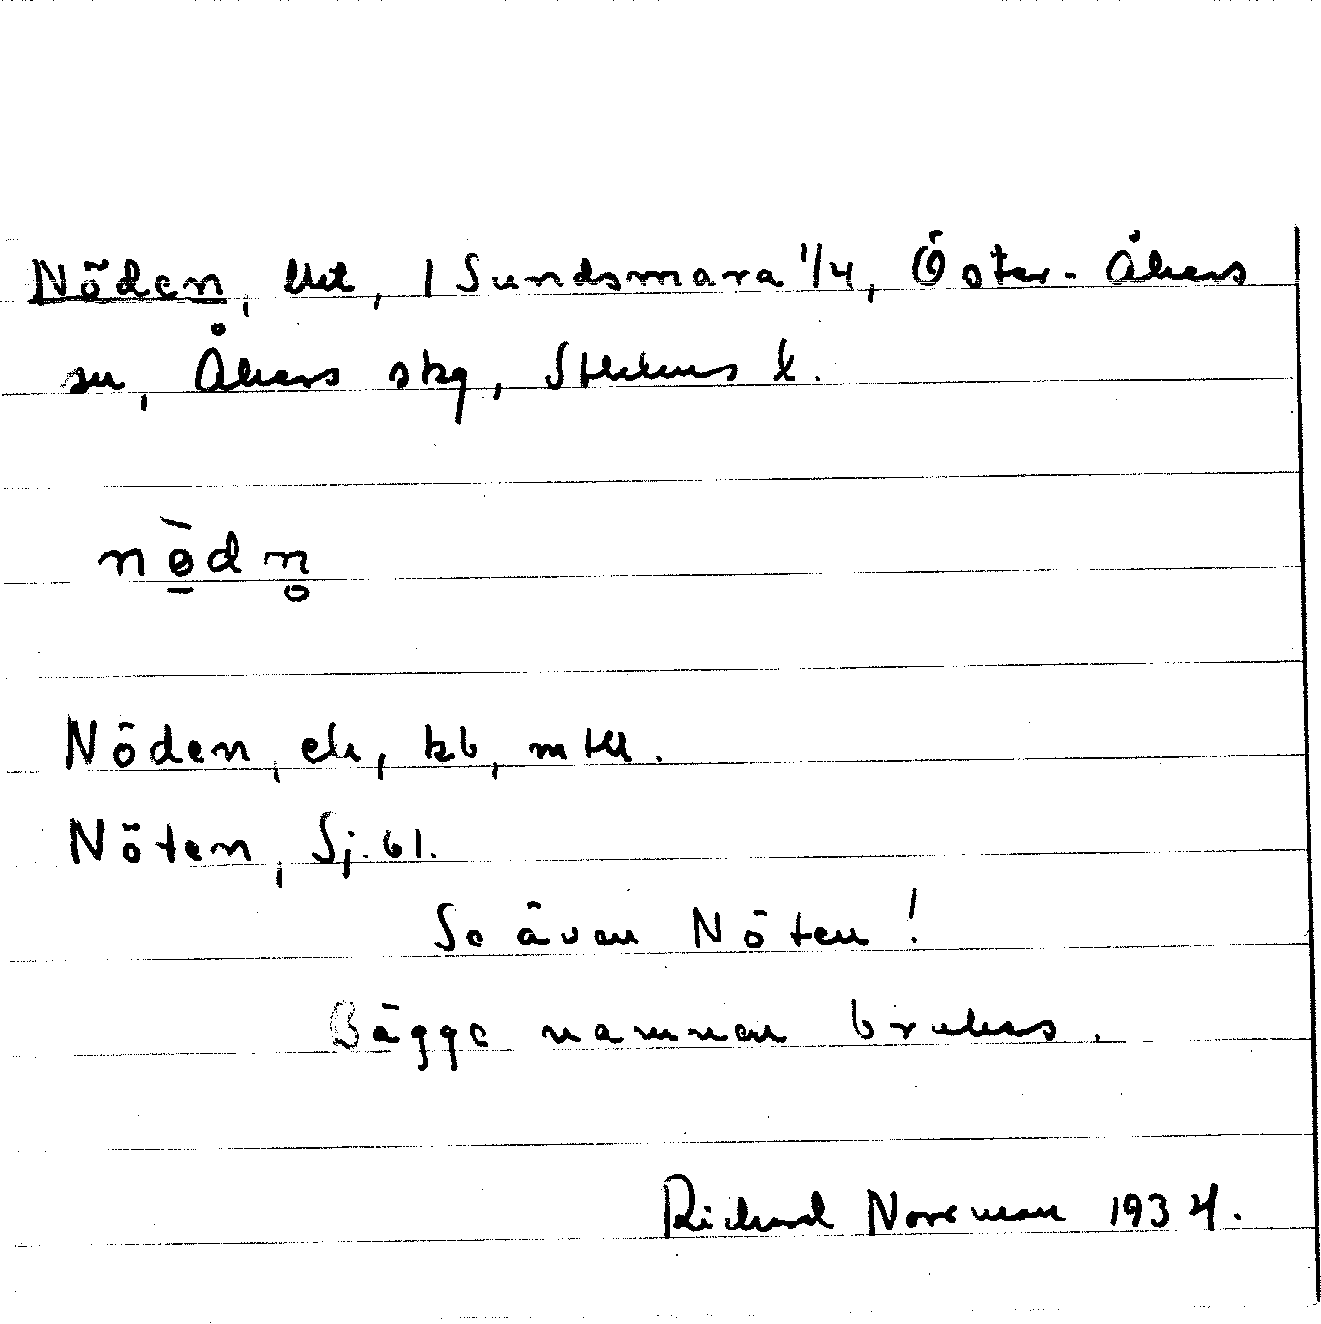 Nöden, lht, 1 Sundsmara 1/4, Öster-Åkers
sn, Åkers skg, Sthlms l.
nø̀dn̥
Nöden, ek, kb, mtll.
Nöten, Sj. 61.
Se även Nöten!
Bägge namnen brukas.
Richard Noreman 1934.